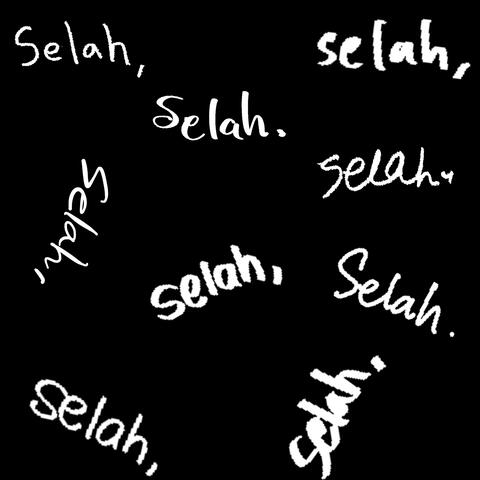 Selah,
selah,
Selah.
selah,
Selah,
selah,
Selah.
selah,
selah,